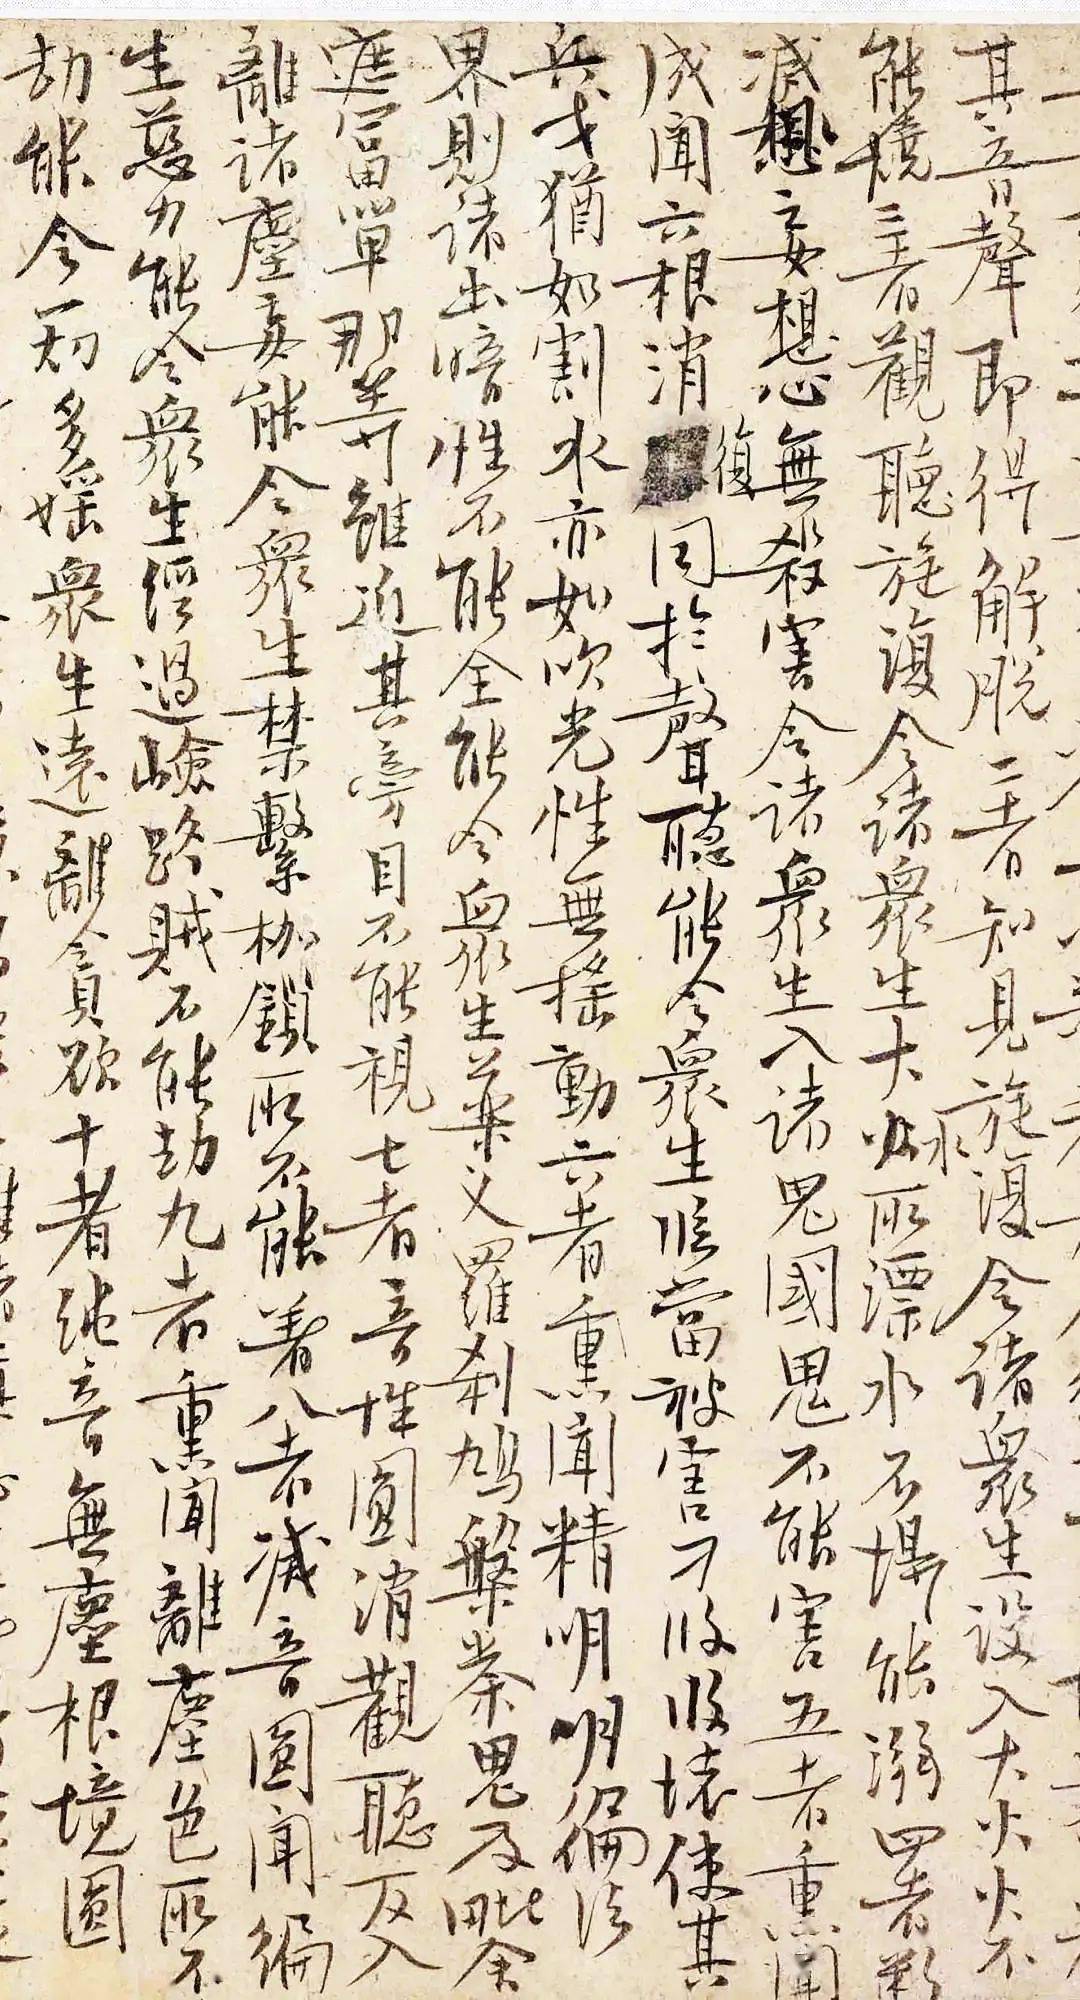 其音聲即得解脫二者知見旋復令諸眾生設入大火火不
能燒三者觀聽旋復令諸眾生大水所漂水不能溺四者斷
滅妄想心無殺害令諸眾生入諸鬼國鬼不能害五者熏聞
成聞六根消復同於聲聽能令眾生臨當被害刀段段壞使其
兵戈猶如割水亦如吹光性無搖動六者熏聞精明明徧法
界則諸幽暗性不能全能令眾生藥叉羅剎鳩槃荼鬼及毗舍
遮富單那等雖近其旁目不能視七者音性圓消觀聽反入
離諸塵妄能令眾生禁繫枷鎖所不能著八者滅音圓聞徧
生慈力能令眾生經過嶮路賊不能劫九者熏聞離塵色所不
劫能令一切多婬眾生遠離貪欲十者純音無塵根境圓